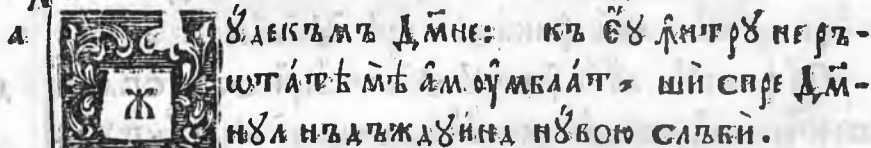 а҃. Жꙋ́декъмъ Дм҃не: къ є҆́ꙋ ꙟ҆нтрꙋ неръ-
ѡта́тѣ мѣ̀ а҆̂м оу҆̂мблáт, шѝ спре Дм҃-
нꙋл нъдъждꙋи́нд нꙋ́вою слъбѝ.